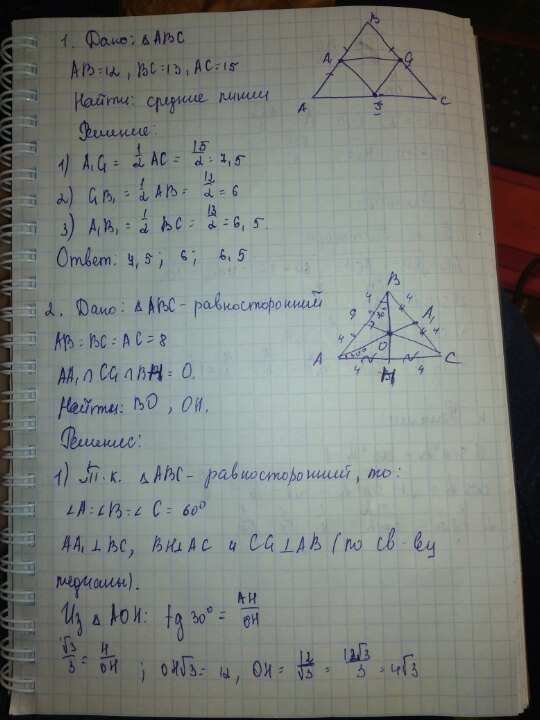 1. Дано: △ABC
AB=12, BC=13, AC=15
Найти: средние линии
Решение:
1) A₁C₁ = 1/2 AC = 15/2 = 7,5
2) C₁B₁ = 1/2 AB = 12/2 = 6
3) A₁B₁ = 1/2 BC = 13/2 = 6,5.
Ответ: 7,5; 6; 6,5
B
A₁ C₁
A B₁ C
2. Дано: △ABC - равносторонний
AB = BC = AC = 8
AA₁ ∩ CC₁ ∩ BH = O.
Найти: BO, OH.
Решение:
1) Т.к. △ABC - равносторонний, то:
∠A = ∠B = ∠C = 60°
AA₁ ⊥ BC, BH ⊥ AC и CC₁ ⊥ AB (по св-ву
медианы).
Из △AOH: tg 30° = AH/OH
√3/3 = 4/OH ; OH√3 = 12, OH = 12/√3 = 12√3/3 = 4√3
B
4 30° 4
A₁
4 O 4
A 30° C
4 H 4